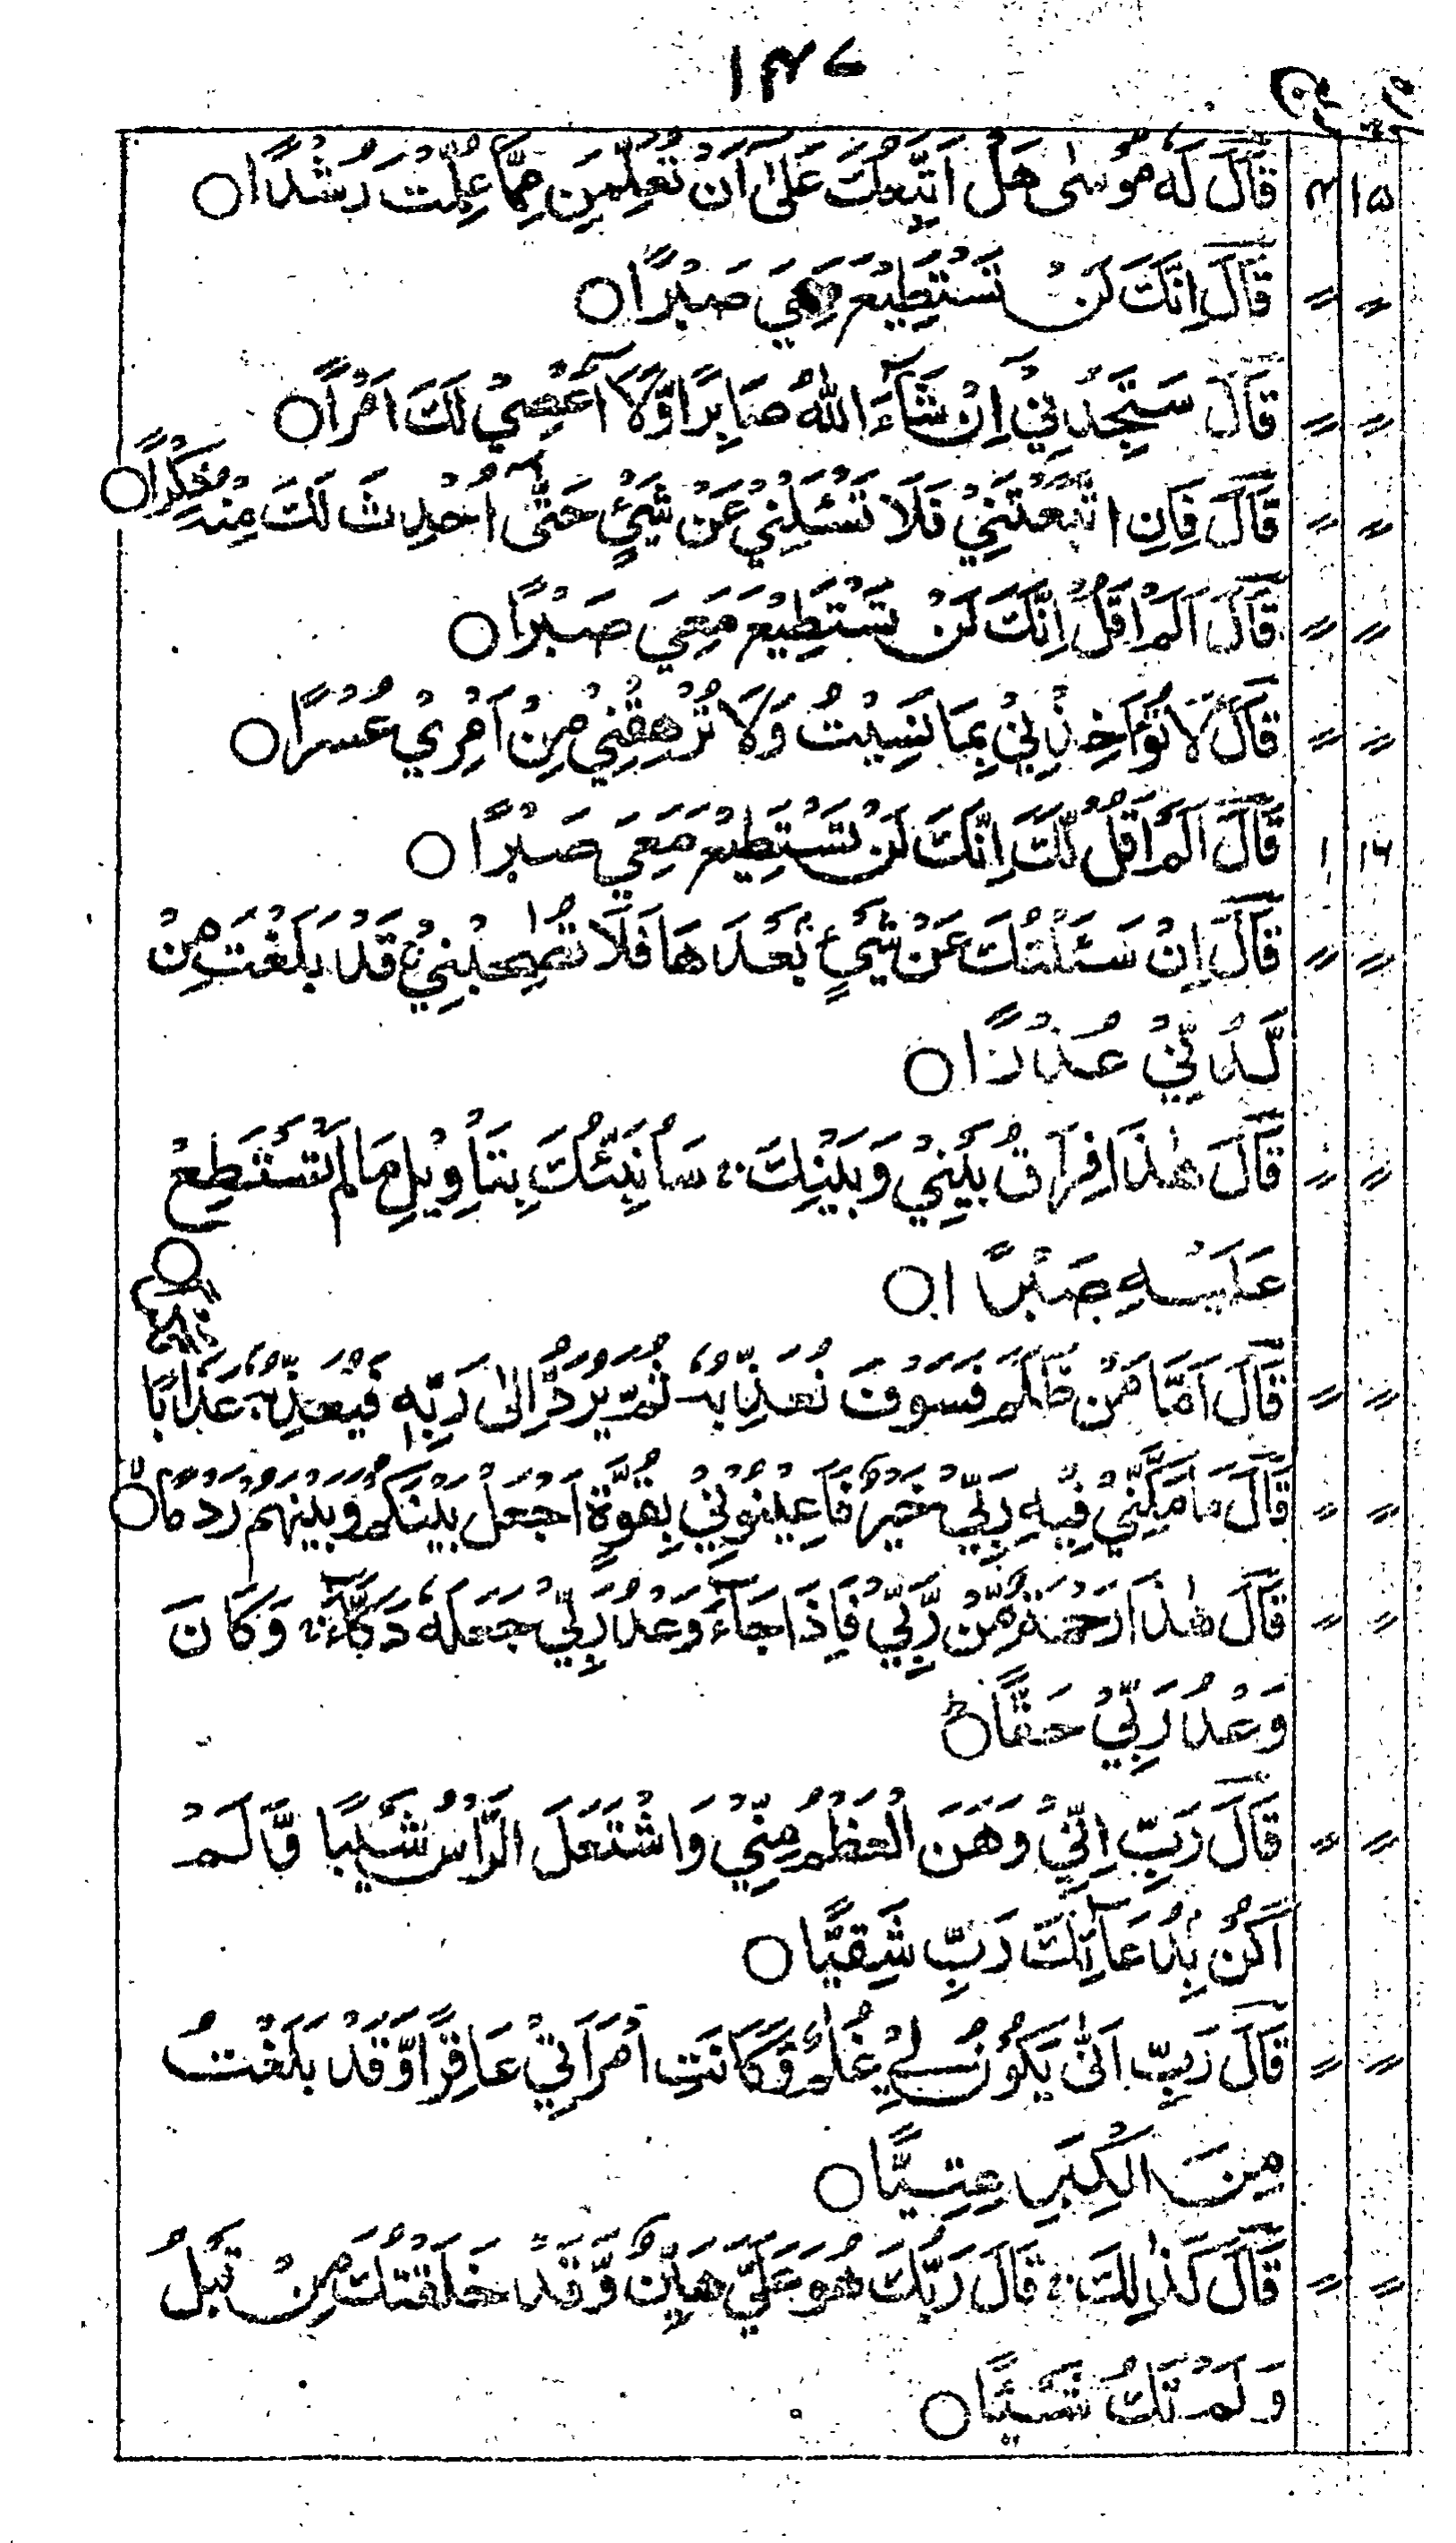 ١٣٧
قَالَ لَهٗ مُوْسٰى هَلْ اَتَّبِعُكَ عَلٰٓى اَنْ تُعَلِّمَنِ مِمَّا عُلِّمْتَ رُشْدًا ○ ٣ ١٥
قَالَ اِنَّكَ لَنْ تَسْتَطِيْعَ مَعِيَ صَبْرًا ○ 〃 〃
قَالَ سَتَجِدُنِيْٓ اِنْ شَآءَ اللّٰهُ صَابِرًا وَّلَآ اَعْصِيْ لَكَ اَمْرًا ○ 〃 〃
قَالَ فَاِنِ اتَّبَعْتَنِيْ فَلَا تَسْـَٔلْنِيْ عَنْ شَيْءٍ حَتّٰٓى اُحْدِثَ لَكَ مِنْهُ ذِكْرًا ○ 〃 〃
قَالَ اَلَمْ اَقُلْ اِنَّكَ لَنْ تَسْتَطِيْعَ مَعِيَ صَبْرًا ○ 〃 〃
قَالَ لَا تُؤَاخِذْنِيْ بِمَا نَسِيْتُ وَلَا تُرْهِقْنِيْ مِنْ اَمْرِيْ عُسْرًا ○ 〃 〃
قَالَ اَلَمْ اَقُلْ لَّكَ اِنَّكَ لَنْ تَسْتَطِيْعَ مَعِيَ صَبْرًا ○ ١ ١٦
قَالَ اِنْ سَـَٔلْتُكَ عَنْ شَيْءٍۭ بَعْدَهَا فَلَا تُصٰحِبْنِيْ ۚ قَدْ بَلَغْتَ مِنْ 〃 〃
لَّدُنِّيْ عُذْرًا ○
قَالَ هٰذَا فِرَاقُ بَيْنِيْ وَبَيْنِكَ ۚ سَاُنَبِّئُكَ بِتَاْوِيْلِ مَا لَمْ تَسْتَطِعْ 〃 〃
عَلَيْهِ صَبْرًا ○
قَالَ اَمَّا مَنْ ظَلَمَ فَسَوْفَ نُعَذِّبُهٗ ثُمَّ يُرَدُّ اِلٰى رَبِّهٖ فَيُعَذِّبُهٗ عَذَابًا 〃 〃
قَالَ مَا مَكَّنِّيْ فِيْهِ رَبِّيْ خَيْرٌ فَاَعِيْنُوْنِيْ بِقُوَّةٍ اَجْعَلْ بَيْنَكُمْ وَبَيْنَهُمْ رَدْمًا ○ 〃 〃
قَالَ هٰذَا رَحْمَةٌ مِّنْ رَّبِّيْ فَاِذَا جَآءَ وَعْدُ رَبِّيْ جَعَلَهٗ دَكَّآءَ ۚ وَكَانَ 〃 〃
وَعْدُ رَبِّيْ حَقًّا ○
قَالَ رَبِّ اِنِّيْ وَهَنَ الْعَظْمُ مِنِّيْ وَاشْتَعَلَ الرَّاْسُ شَيْبًا وَّلَمْ 〃 〃
اَكُنْۢ بِدُعَآئِكَ رَبِّ شَقِيًّا ○
قَالَ رَبِّ اَنّٰى يَكُوْنُ لِيْ غُلٰمٌ وَّكَانَتِ امْرَاَتِيْ عَاقِرًا وَّقَدْ بَلَغْتُ 〃 〃
مِنَ الْكِبَرِ عِتِيًّا ○
قَالَ كَذٰلِكَ ۚ قَالَ رَبُّكَ هُوَ عَلَيَّ هَيِّنٌ وَّقَدْ خَلَقْتُكَ مِنْ قَبْلُ 〃 〃
وَلَمْ تَكُ شَيْـًٔا ○